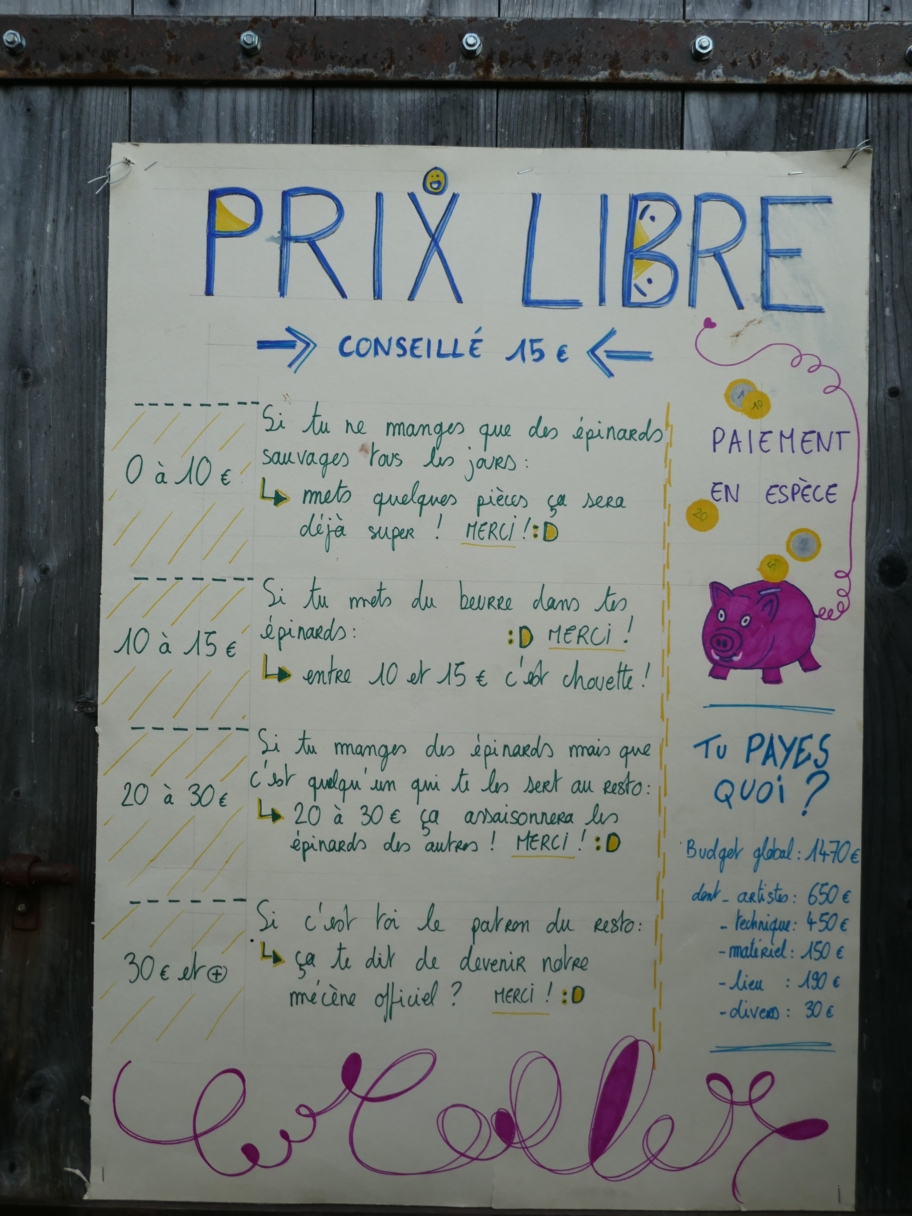 PRIX LIBRE
CONSEILLÉ 15 €
0 à 10 €
Si tu ne manges que des épinards
sauvages tous les jours :
mets quelques pièces ça sera
déjà super ! MERCI ! :D
10 à 15 €
Si tu mets du beurre dans tes
épinards :
:D MERCI !
entre 10 et 15 € c'est chouette !
20 à 30 €
Si tu manges des épinards mais que
c'est quelqu'un qui te les sert au resto :
20 à 30 € ça assaisonnera les
épinards des autres ! MERCI ! :D
30 € et +
Si c'est toi le patron du resto :
ça te dit de devenir notre
mécène officiel ? MERCI ! :D
1
10
PAIEMENT
EN ESPÈCE
20
2
5
TU PAYES
QUOI ?
Budget global : 1470 €
dont - artistes : 650 €
- technique : 450 €
- matériel : 150 €
- lieu : 190 €
- divers : 30 €